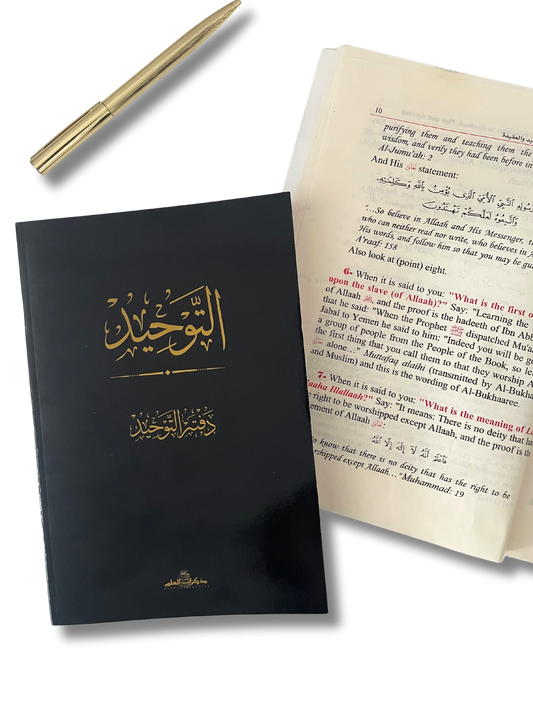 التَّوحِيد
دَفْتَرُ التَّوْحِيدِ
مذكرات العلم
10
purifying them and teaching them the
wisdom, and verify they had been before in
Al-Jumu'ah: 2
And His statement:
النَّبِيِّ الْأُمِّيِّ الَّذِي يُؤْمِنُ بِاللَّهِ وَكَلِمَاتِهِ
وَاتَّبِعُوهُ لَعَلَّكُمْ تَهْتَدُونَ
"...So believe in Allaah and His Messenger, t
who can neither read nor write, who believes in A
His words, and follow him so that you may be gu
A'raaf: 158
Also look at (point) eight.
6- When it is said to you: "What is the first o
upon the slave (of Allaah)?" Say: "Learning the
of Allaah, and the proof is the hadeeth of Ibn Ab
that he said: "When the Prophet ﷺ dispatched Mu'a
Jabal to Yemen he said to him: "Indeed you will be go
a group of people from the People of the Book, so le
the first thing that you call them to that they worship A
alone..." Muttafaq alaihi (transmitted by Al-Bukha
and Muslim) and this is the wording of Al-Bukhaaree.
7- When it is said to you: "What is the meaning of La
laaha Illallaah?" Say: "It means: There is no deity that ha
e right to be worshipped except Allaah, and the proof is th
ement of Allaah
فَاعْلَمْ أَنَّهُ لَا إِلَهَ إِلَّا اللَّهُ
o know that there is no deity that has the right to be
rshipped except Allaah..." Muhammad: 19